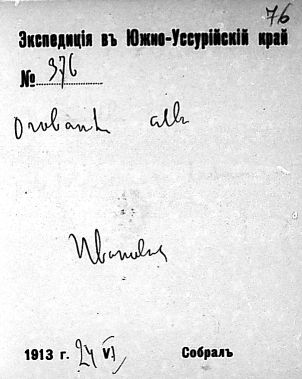 76
Экспедиція въ Южно-Уссурійскій край
№ 376
alba
1913 г. 24 VI Собралъ